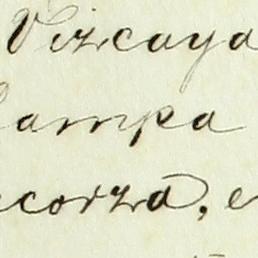 Vizcaya
ampa
corza, e